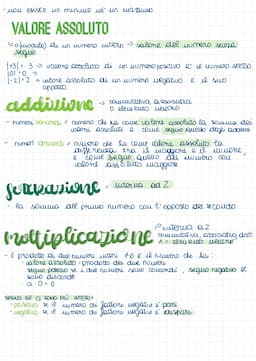 - non esiste un minimo né un massimo
VALORE ASSOLUTO
↳ o (modulo) di un numero intero → valore del numero senza
segno
|+3| = 3 → valore assoluto di un numero positivo è il numero stesso
|0| = 0 →
|-2| = 2 → valore assoluto di un numero negativo è il suo
opposto
addizione → commutativa, associativa
0 elemento neutro
- numeri concordi = numero che ha come valore assoluto la somma dei
valori assoluti e come segno quello degli addendi
- numeri discordi = numero che ha come valore assoluto la
differenza tra il maggiore e il minore,
e come segno quello del numero con
valore assoluto maggiore
sottrazione → interna ad Z
- la somma del primo numero con l'opposto del secondo
moltiplicazione → interna a Z
commutativa, associativa, distr.
1 elemento neutro
- il prodotto di due numeri interi ≠0 è il numero che ha:
- valore assoluto = prodotto dei due numeri
segno positivo se i due numeri sono concordi, segno negativo se
sono discordi
- a · 0 = 0
- positivo se il numero di fattori negativi è pari
- negativo se il numero di fattori negativi è dispari